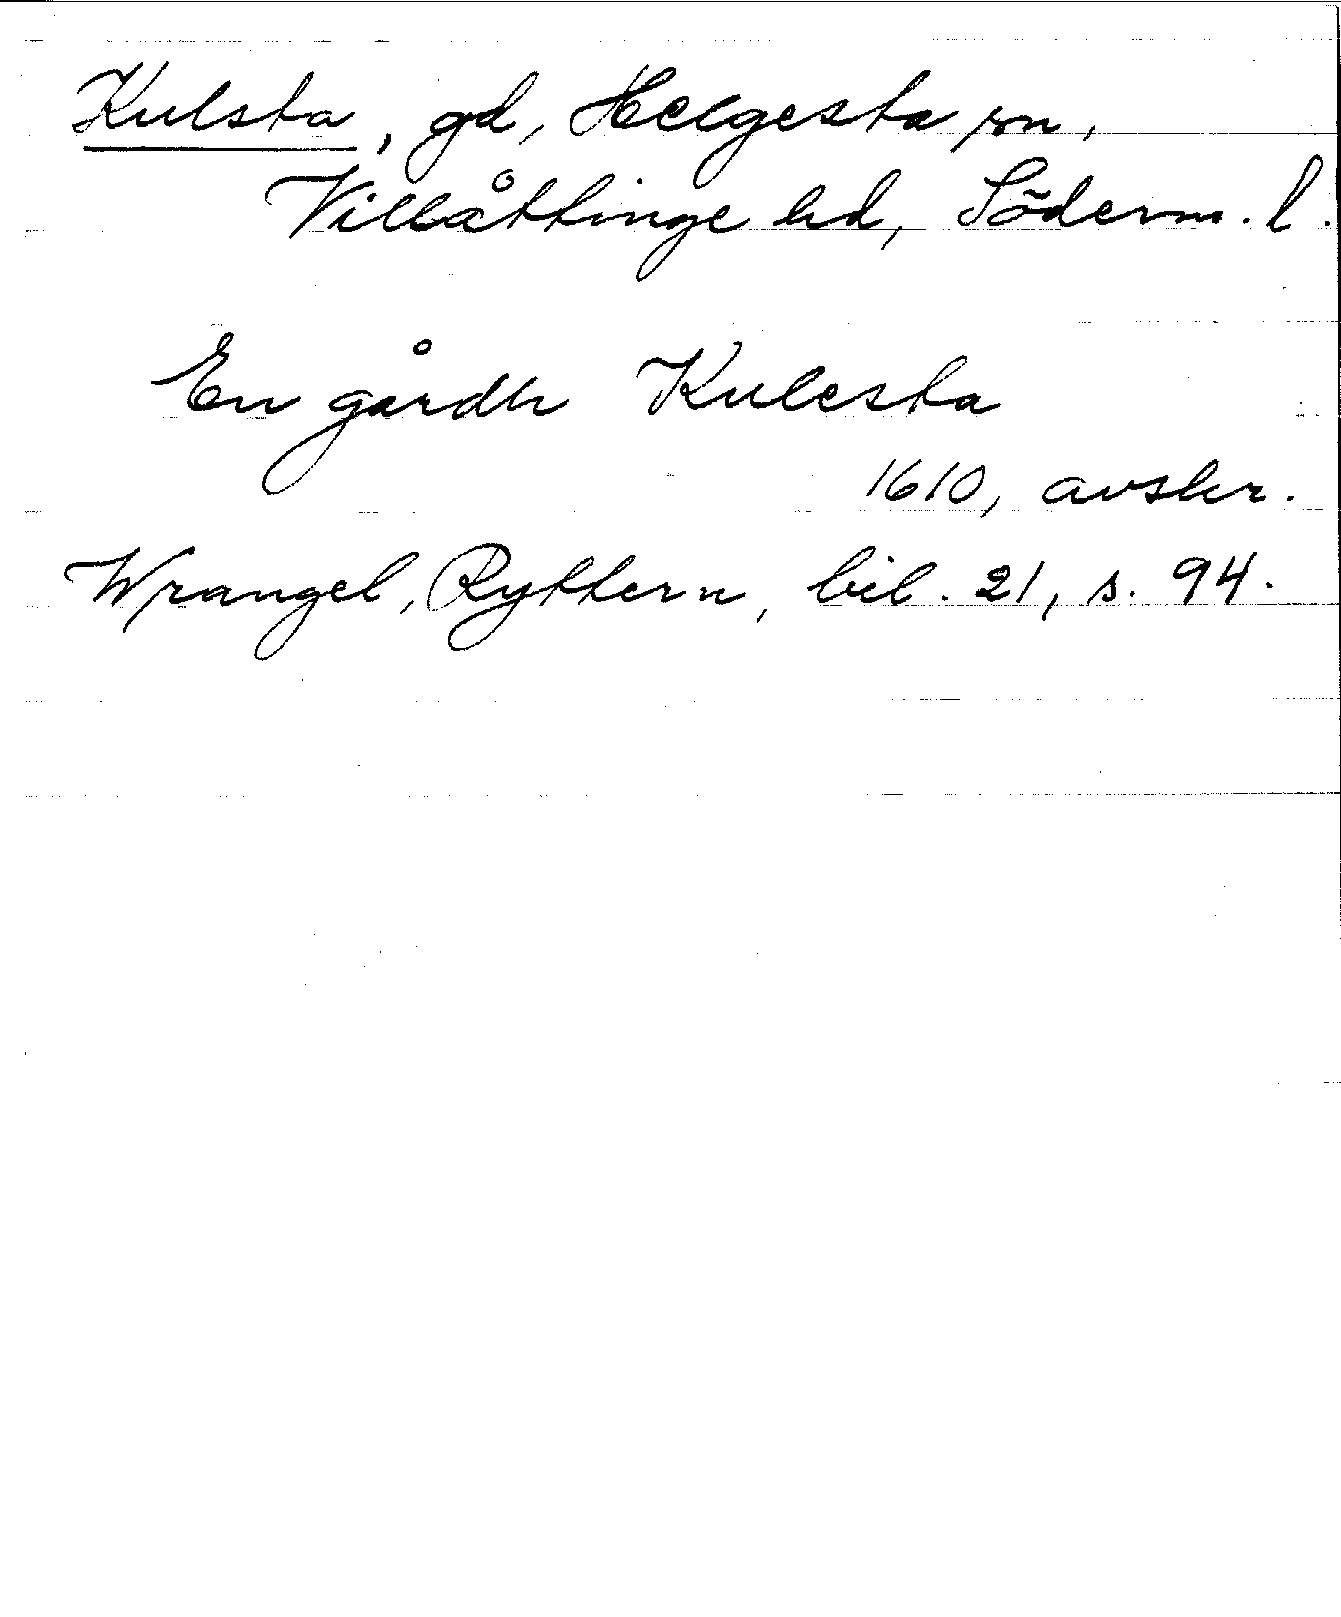 Kulsta, gd, Helgesta sn,
Villåttinge hd, Söderm. l.
En gårdh Kulesta
1610, avskr.
Wrangel, Ryttern, bil. 21, s. 94.